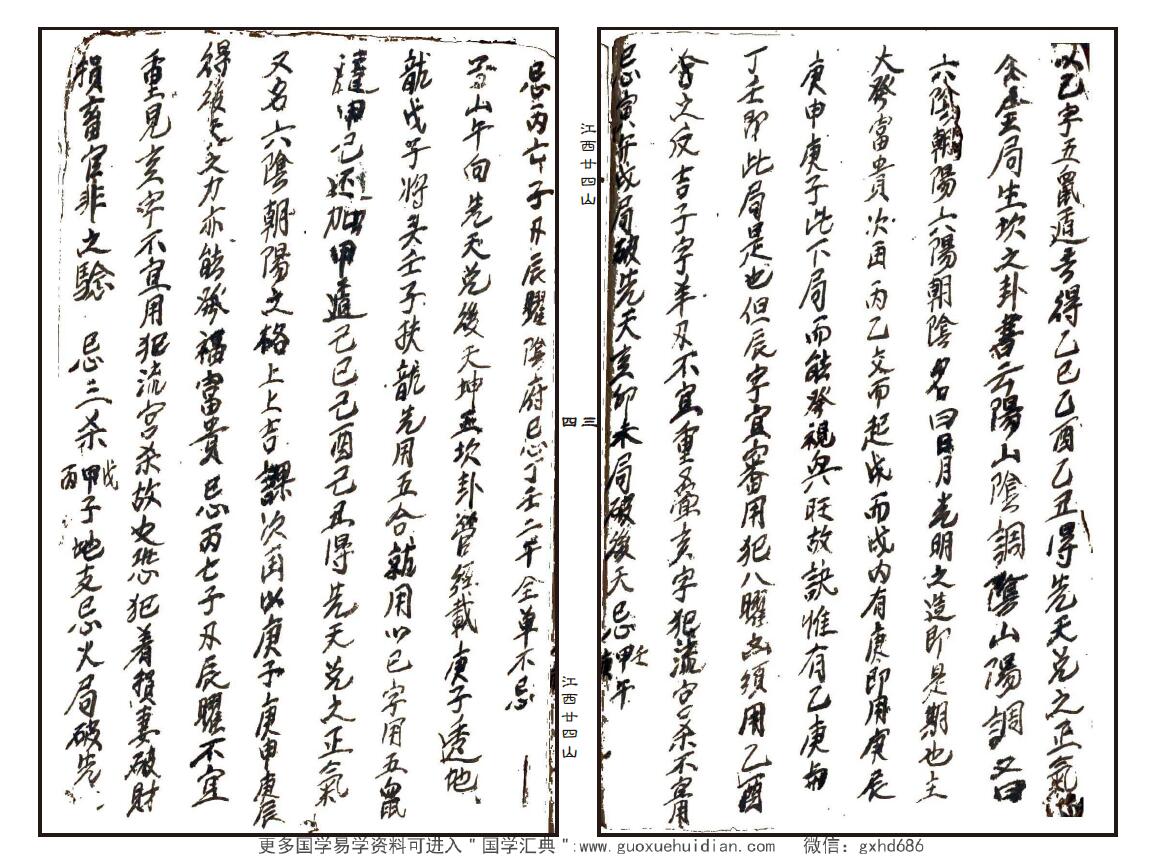 以己字五鼠遁吉得乙巳乙酉乙丑得先天兑之正氣
金局生坎之卦書云陽山陰調陰山陽調又曰
六陰朝陽六陽朝陰名曰日月光明之造即是期也主
大發富貴次再丙乙交而起戊而戊内有庚即用庚辰
庚申庚子此下局而能發視與旺故訣惟有乙庚
丁壬即此局是也但辰字宜審用犯八曜出須用乙酉
合之反吉子字羊刃不宜重亥字犯流字杀不宜用
忌寅午戌局破先天亥卯未局破後天忌甲午
壬
庚
三
四
江西廿四山
江西廿四山
忌丙六子刃辰曜陰府忌丁壬二干全單不忌
子山午向先天兑後天坤坎卦管經載庚子透地
龍戊子將头壬子扶龍先用五合就用以己字用五鼠
遁甲己还加甲遁己巳己酉己丑得先天兑之正氣
又名六陰朝陽之格上上吉課次用以庚子庚申庚辰
得後天之力亦能發福富貴忌丙七子刃辰曜不宜
重見亥字不宜用犯流宫杀故也恐犯着損妻破財
損畜官非之騐 忌三杀戊甲丙子地支忌火局破先
更多国学易学资料可进入＂国学汇典＂:www.guoxuehuidian.com 微信：gxhd686